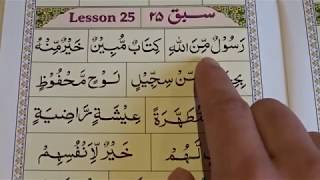 Lesson 25 ۲۵ سبق
رَسُوْلٌ مِّنَ اللّٰهِ كِتَابٌ مُّبِيْنٌ خَيْرٌ مِّنْهُ
مِّنْ سِجِّيْلٍ لَوْحٍ مَّحْفُوْظٍ
عِيْشَةٍ رَّاضِيَةٍ
لَّهُمْ خَيْرٌ لِّاَنْفُسِهِمْ